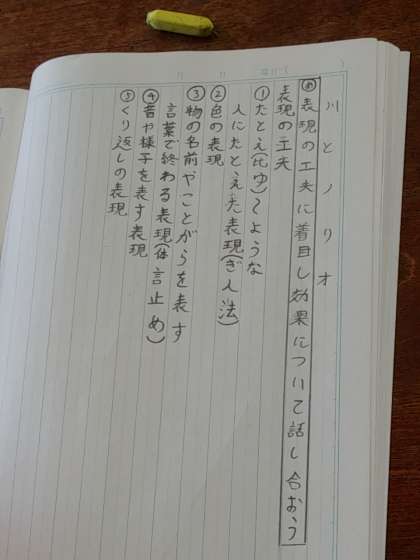 川とノリオ
め 表現の工夫に着目し効果について話し合おう
表現の工夫
①たとえ(比ゆ)〜ような
人にたとえた表現(ぎ人法)
②色の表現
③物の名前やことがらを表す
言葉で終わる表現(体言止め)
④音や様子を表す表現
⑤くり返しの表現